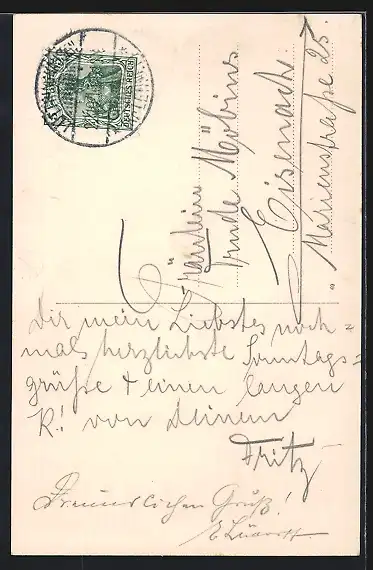 DEUTSCHES REICH
Fräulein
Trude Möbius
Eisenach
Marienstraße 25.
Dir mein Liebstes noch=
mals herzlichste Sonntags=
grüße + einen langen
K! von Deinem
Fritz
Freundlichen Gruß!